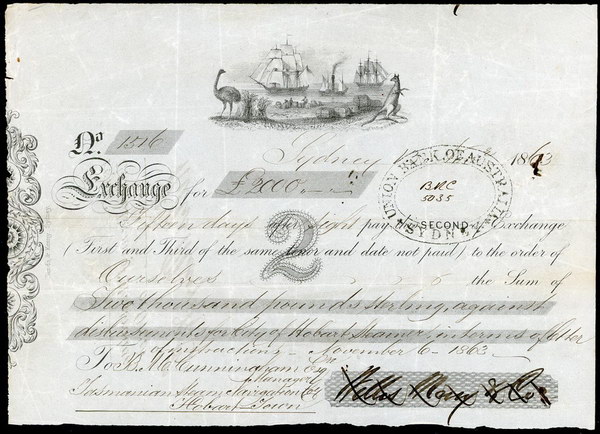 No. 1516
Sydney 1863
Exchange for £2000
UNION BANK OF AUSTRALIA
SYDNEY
BRC
5035
Fifteen days after sight pay this SECOND of Exchange
2
(First and Third of the same tenor and date not paid) to the order of
Ourselves the Sum of
Two thousand pounds sterling against
disbursements for City of Hobart Steamer in terms of letter
of instructions November 6 1863
To B. M. Cunningham Esq
Manager
Tasmanian Steam Navigation Co
Hobart Town
& Co